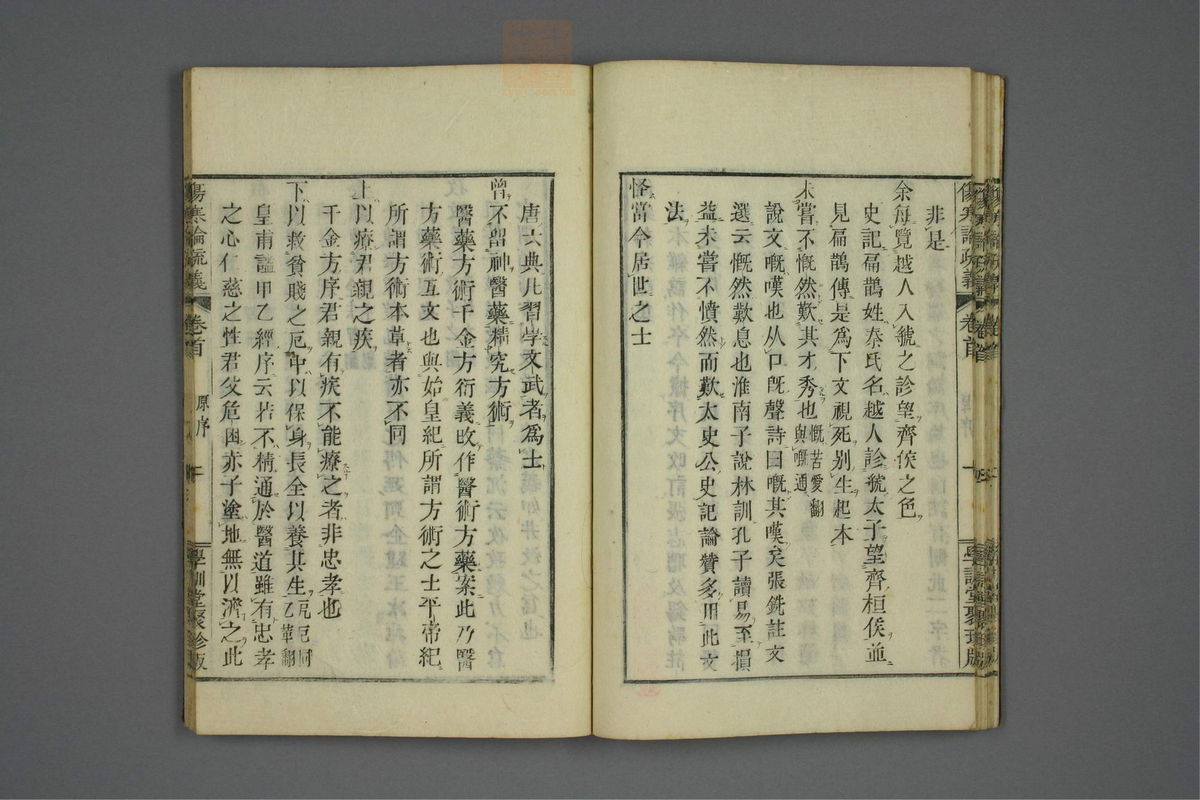 傷寒論疏義
卷首
學訓堂聚珍版
非是
余每覽越人入虢之診望齊侯之色
史記扁鵲姓秦氏名越人診虢太子望齊桓侯並
見扁鵲傳是爲下文視死别生起本
未嘗不慨然歎其才秀也慨苦愛翻與嘅通
說文嘅嘆也从口旣聲詩曰嘅其嘆矣張銑註文
選云慨然歎息也淮南子說林訓孔子讀易至損
益未嘗不憤然而歎太史公史記論贊多用此文
法
怪當今居世之士
唐六典凡習學文武者爲士
曾不留神醫藥精究方術
醫藥方術千金方衍義改作醫術方藥案此乃醫
方藥術互文也與始皇紀所謂方術之士平帝紀
所謂方術本草者亦不同
上以療君親之疾
千金方序君親有疾不能療之者非忠孝也
下以救貧賤之厄中以保身長全以養其生厄戹同乙革翻
皇甫謐甲乙經序云若不精通於醫道雖有忠孝
之心仁慈之性君父危困赤子塗地無以濟之此
傷寒論疏義
卷首
原序
二
學訓堂聚珍版